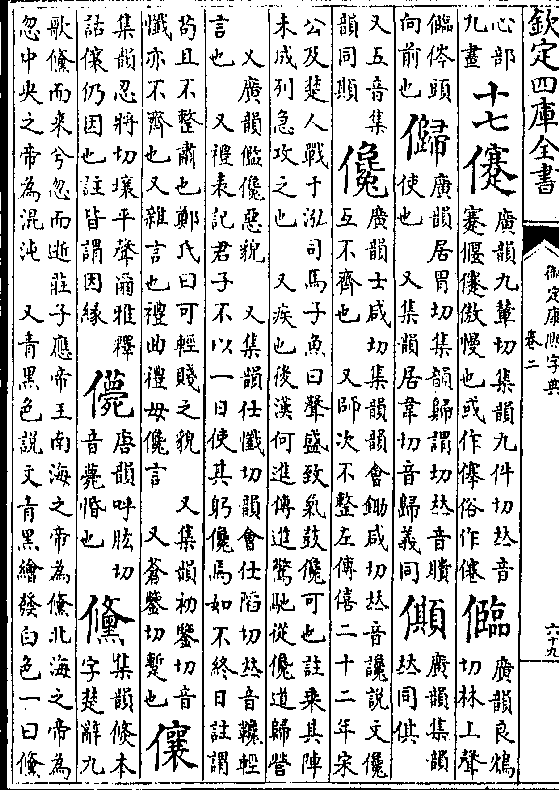 欽定四庫全書
御定康熙字典
卷二
六十九
心部
九畫
十七
㒄
廣韻九輦切集韻九件切𠀤音
蹇偃㒄傲慢也或作㒄俗作僊
㒝
廣韻良鴆
切林上聲
㒝㑪頭
向前也
㒑
廣韻居胃切集韻歸謂切𠀤音瞶
使也　又集韻居韋切音歸義同
㒣
廣韻集韻
𠀤同供
又五音集
韻同顯
儳
廣韻士咸切集韻韻會鋤咸切𠀤音讒說文儳
互不齊也　又師次不整左傳僖二十二年宋
公及楚人戰于泓司馬子魚曰聲盛致氣鼓儳可也註乘其陣
未成列急攻之也　又疾也後漢何進傳進驚馳從儳道歸營
　又廣韻儖儳惡貌　又集韻仕懺切韻會仕陷切𠀤音鑱輕
言也　又禮表記君子不以一日使其躬儳焉如不終日註謂
苟且不整肅也鄭氏曰可輕賤之貌　又集韻初鑒切音
懺亦不齊也又雜言也禮曲禮毋儳言　又蒼鑒切蹔也
儴
集韻忍將切壤平聲爾雅釋
詁儴仍因也註皆謂因緣
儚
唐韻呼肱切
音薨惛也
儵
集韻倏本
字楚辭九
歌儵而來兮忽而逝莊子應帝王南海之帝為儵北海之帝為
忽中央之帝為混沌　又青黑色說文青黑繒發白色一曰儵